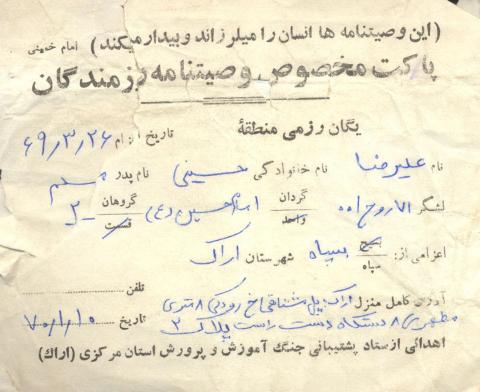 (این وصیتنامه ها انسان را میلرزاند و بیدار میکند) امام خمینی
پاکت مخصوص وصیتنامه رزمندگان
یگان رزمی منطقهٔ تاریخ اعزام ۶۹/۳/۲۶
نام علیرضا نام خانوادگی حسینی نام پدر مسلم
لشگر ۷۱ روح ا... گردان واحد امام حسین (ع) گروهان قسمت ۲
اعزامی از: بسیج سپاه سپاه شهرستان اراک
تلفن
آدرس کامل منزل اراک پل خ رودکی ۸ متری
مطهری ۸ دستگاه دست راست پلاک ۳ تاریخ ۷۰/۱/۱۰
اهدائی از ستاد پشتیبانی جنگ آموزش و پرورش استان مرکزی (اراک)